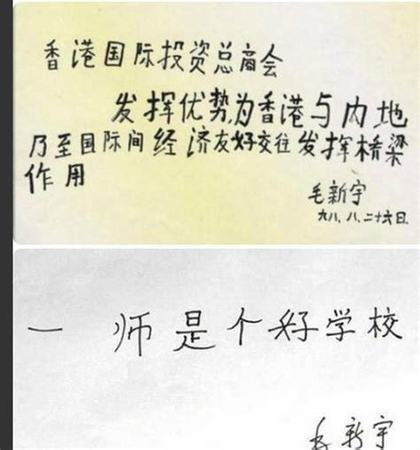 香港国际投资总商会
发挥优势,为香港与内地
乃至国际间经济友好交往发挥桥梁
作用
毛新宇
九八.八.二十六日
一师是个好学校
毛新宇